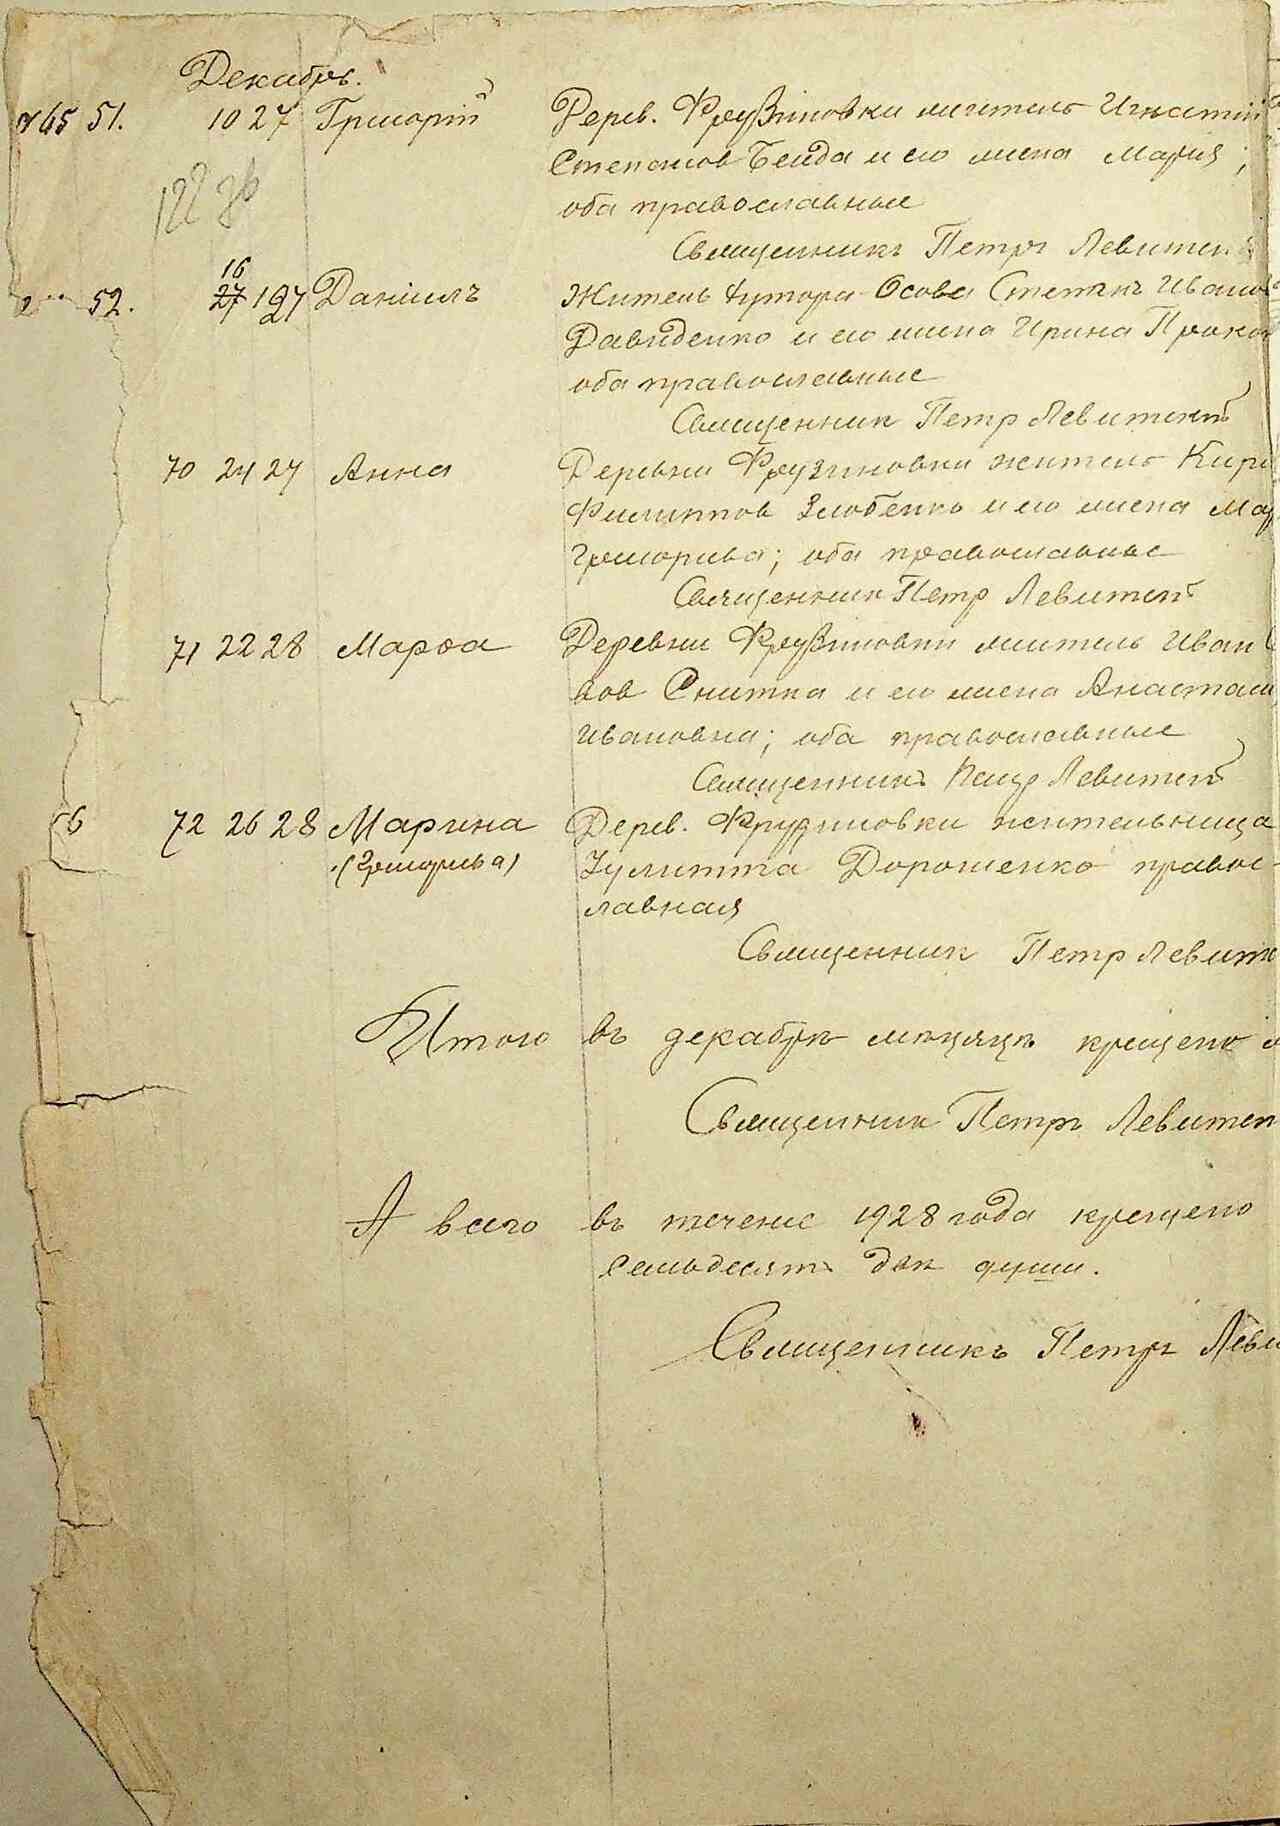 Декабрь.
65 51. 10 27 Григорій Дерев. Фрузиновки житель Игнатій
Степанов Бенда и его жена Мария;
оба православные
Священникъ Петръ Левитск
52. 16 27 197 Даніилъ Житель хутора Осова Степанъ Иванов
Давиденко и его жена Ирина Проко
оба православные
Священник Петр Левитскій
70 24 27 Анна Деревни Фрузиновки житель Кири
Филиппов Злобенко и его жена Мар
Григорьева; оба православные
Священник Петр Левитскій
71 22 28 Марѳа Деревни Фрузиновки житель Иван
вов Снитка и его жена Анастаси
Ивановна; оба православные
Священникъ Петр Левитскій
6 72 26 28 Марина Дерев. Фрузиновки жительница
(Григорьева) Іулитта Дорошенко правос-
лавная
Священник Петр Левитс
Итого въ декабрѣ мѣсяцѣ крещено
Священник Петръ Левитск
А всего въ течение 1928 года крещено
семьдесятъ двѣ души.
Священникъ Петръ Леви